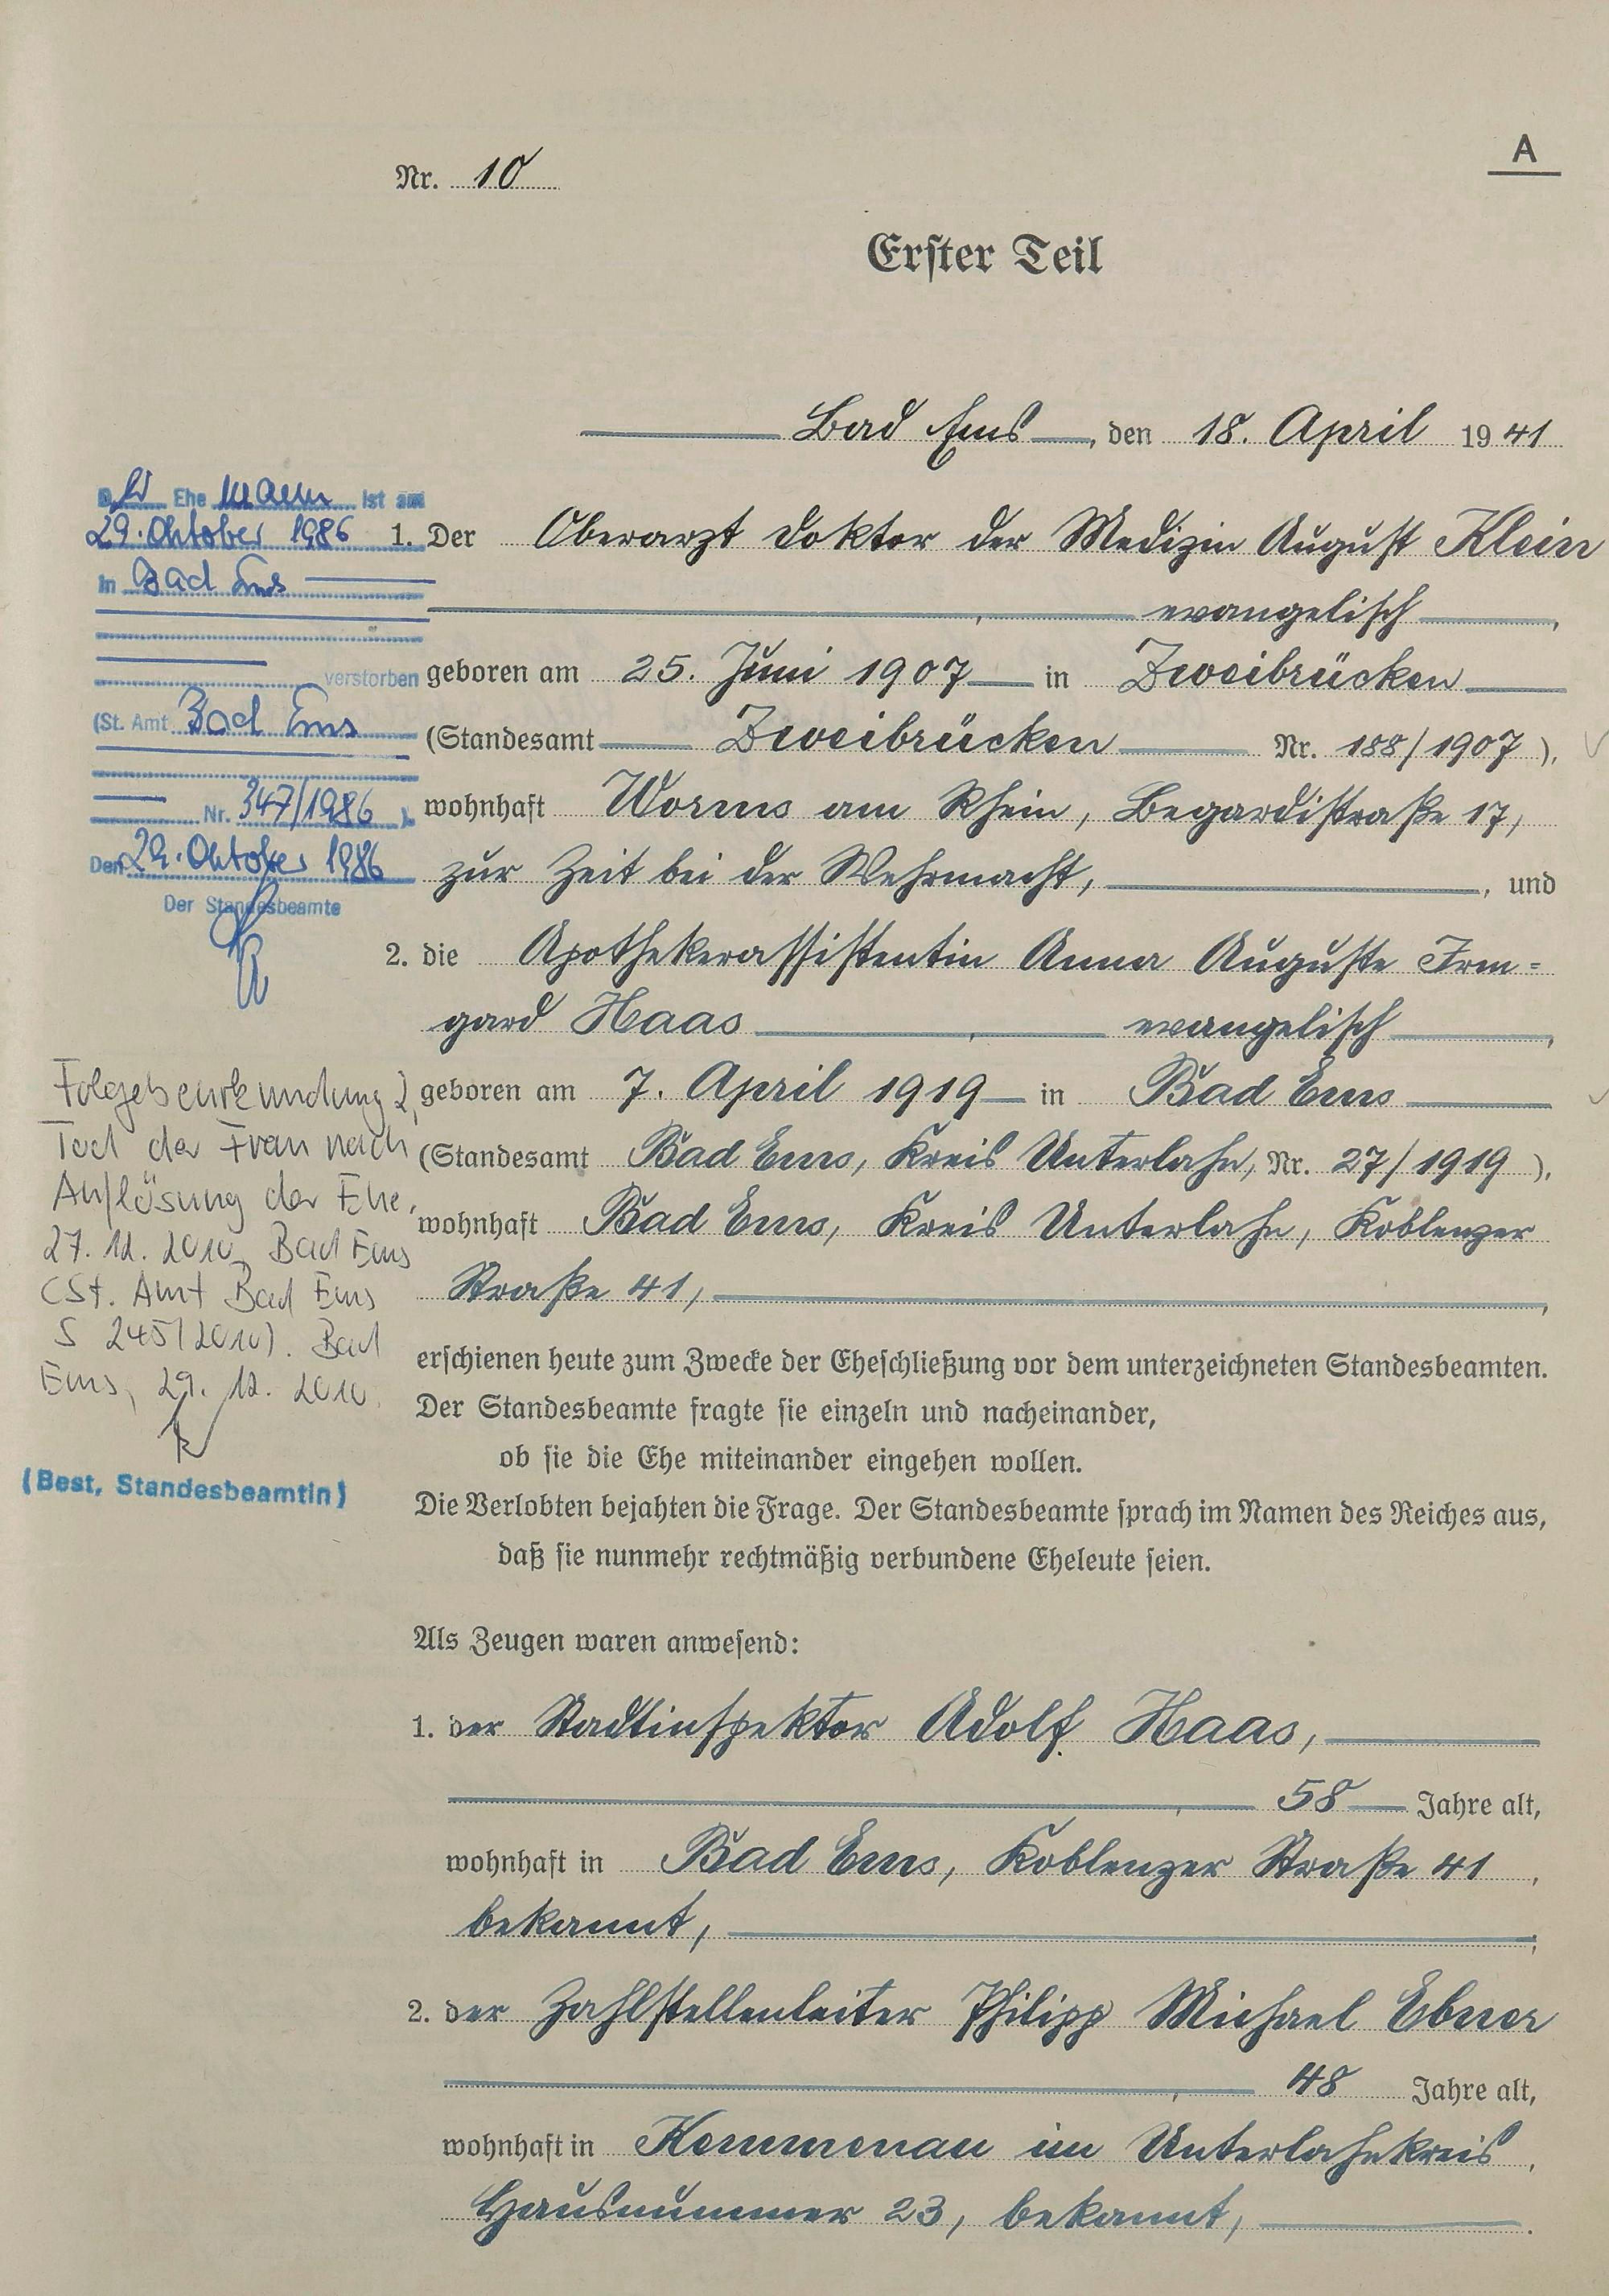 A
Nr. 10
Erster Teil
Bad Ems, den 18. April 1941
1. Der Oberarzt Doktor der Medizin August Klein
, evangelisch,
geboren am 25. Juni 1907 in Zweibrücken
(Standesamt Zweibrücken Nr. 188/1907),
wohnhaft Worms am Rhein, Begardistraße 17,
zur Zeit bei der Wehrmacht, , und
2. die Apothekerassistentin Anna Auguste Irm=
gard Haas, evangelisch,
geboren am 7. April 1919 in Bad Ems
(Standesamt Bad Ems, Kreis Unterlahn, Nr. 27/1919),
wohnhaft Bad Ems, Kreis Unterlahn, Koblenzer
Straße 41,
erschienen heute zum Zwecke der Eheschließung vor dem unterzeichneten Standesbeamten.
Der Standesbeamte fragte sie einzeln und nacheinander,
ob sie die Ehe miteinander eingehen wollen.
Die Verlobten bejahten die Frage. Der Standesbeamte sprach im Namen des Reiches aus,
daß sie nunmehr rechtmäßig verbundene Eheleute seien.
Als Zeugen waren anwesend:
1. der Stadtinspektor Adolf Haas,
, 58 Jahre alt,
wohnhaft in Bad Ems, Koblenzer Straße 41,
bekannt, ;
2. der Zahlstellenleiter Philipp Michael Ebner
, 48 Jahre alt,
wohnhaft in Kemmenau im Unterlahnkreis,
Hausnummer 23, bekannt, .
Der Ehemann ist am
29. Oktober 1986
in Bad Ems
verstorben
(St. Amt Bad Ems
Nr. 347/1986).
Den 29. Oktober 1986
Der Standesbeamte
Folgebeurkundung 2,
Tod der Frau nach
Auflösung der Ehe,
27.12.2010, Bad Ems
(St. Amt Bad Ems
S 245/2010). Bad
Ems, 29.12.2010.
(Best, Standesbeamtin)